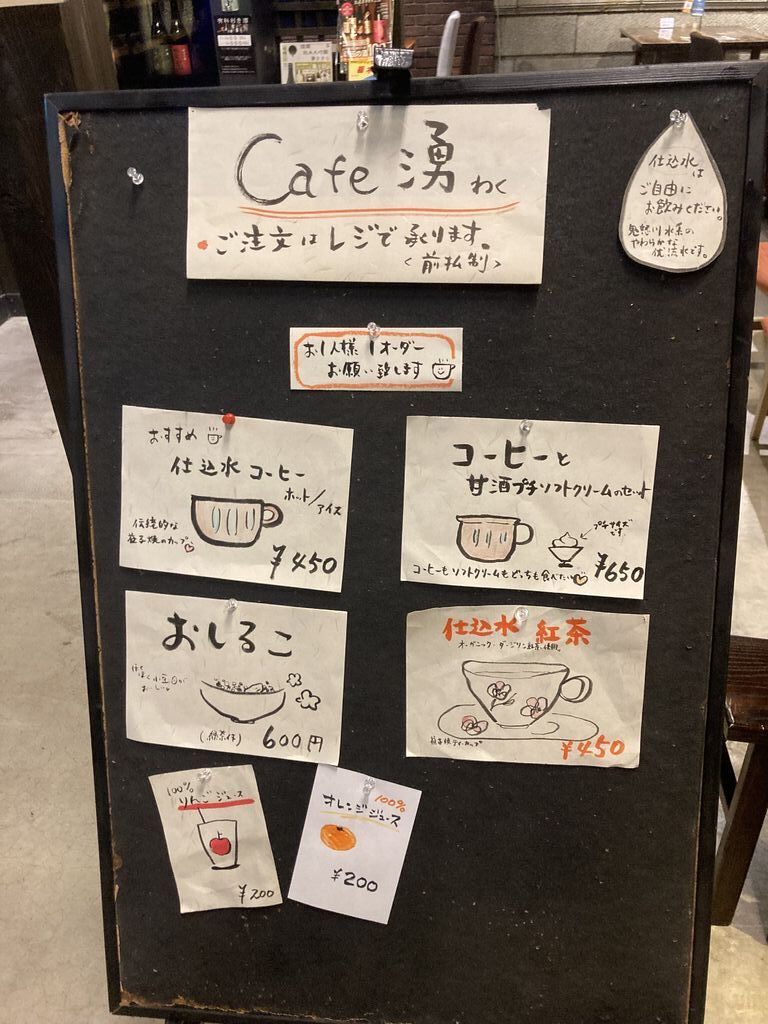 Cafe 湧 わく
ご注文はレジで承ります。
<前払制>
仕込水は
ご自由に
お飲みください。
鬼怒川水系の
やわらかな
伏流水です。
お1人様1オーダー
お願い致します
おすすめ
仕込水コーヒー
ホット/アイス
伝統的な
益子焼のカップ
¥450
コーヒーと
甘酒プチソフトクリームのセット
プチサイズです
コーヒーもソフトクリームもどっちも食べたい
¥650
おしるこ
小豆が
おいしい
(緑茶付) 600円
仕込水 紅茶
オーガニック・ダージリン紅茶使用。
益子焼ティーカップ
¥450
100%
りんごジュース
¥200
100%
オレンジジュース
¥200